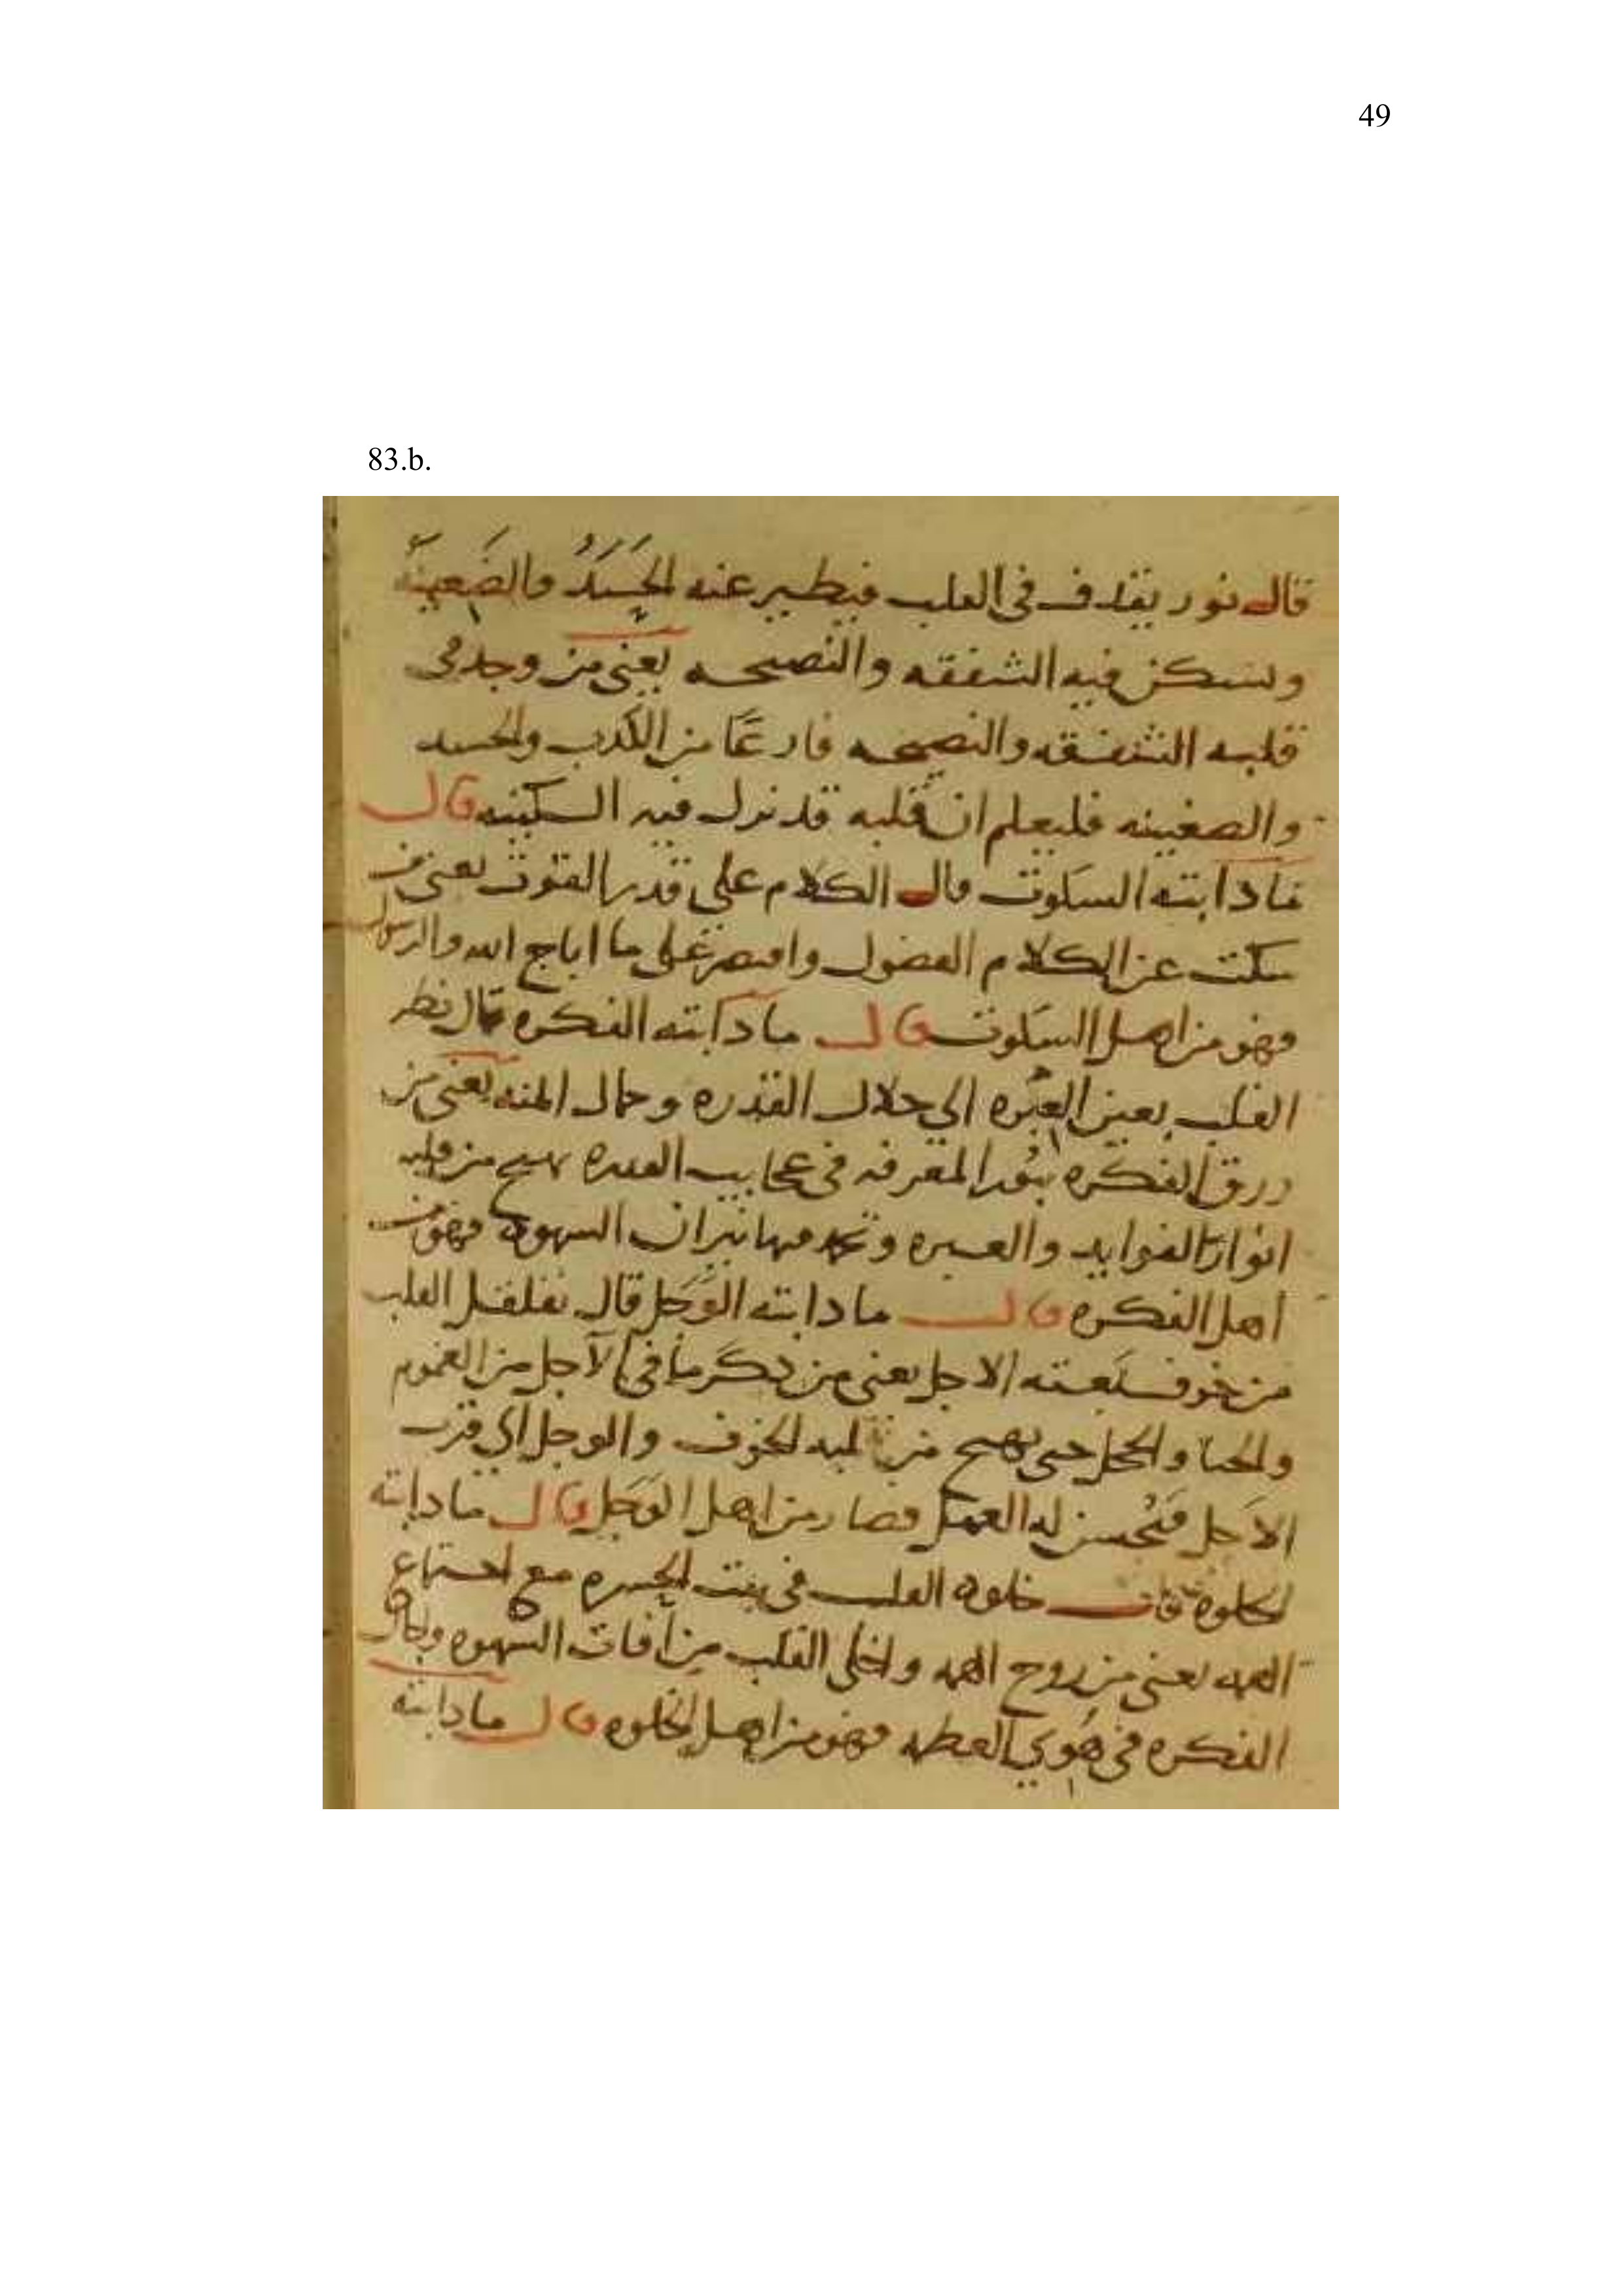 49
83.b.
قال نور يقذف فى القلب فيطير عنه الحَسَدُ والضَغينَة
وتسكن فيه الشفقه والنصيحه يعنى من وجد فى
قلبه الشفقه والنصيحه فارغًا من الكذب والحسد
والضغينه فليعلم ان قلبه قد نزل فيه السكينه قال
ما دابته السكوت قال الكلام على قدر القوت يعنى من
سكت عن الكلام الفضول واقتصر على ما اباح الله والرسول
فهو من اهل السكوت قال ما دابته الفكره قال نظر
القلب بعين العبره الى جلال القدره وجمال المنه يعنى من
رزق الفكره بنور المعرفه فى عجايب القدره يهيج من قلبه
انوار الفوايد والعبره وتخمد فيها نيران الشهوة فهو من
اهل الفكره قال ما دابته الوَجَل قال تقلقل القلب
من خوف بعته الاجل يعنى من ذكر ما فى الآجل من الغموم
والحيا والخجل حتى يهيج من قلبه الخوف والوجل الى قرب
الاَجل فيُحسن له العمل فصار من اهل الوَجَل قال ما دابته
الخلوة قال خلوة القلب فى بيت الحسره مع اجتماع
الهمه يعنى من روح الهمه واخلى القلب من آفات الشهوه وجال
الفكره فى هَوى العظمه فهو من اهل الخلوه قال ما دابته